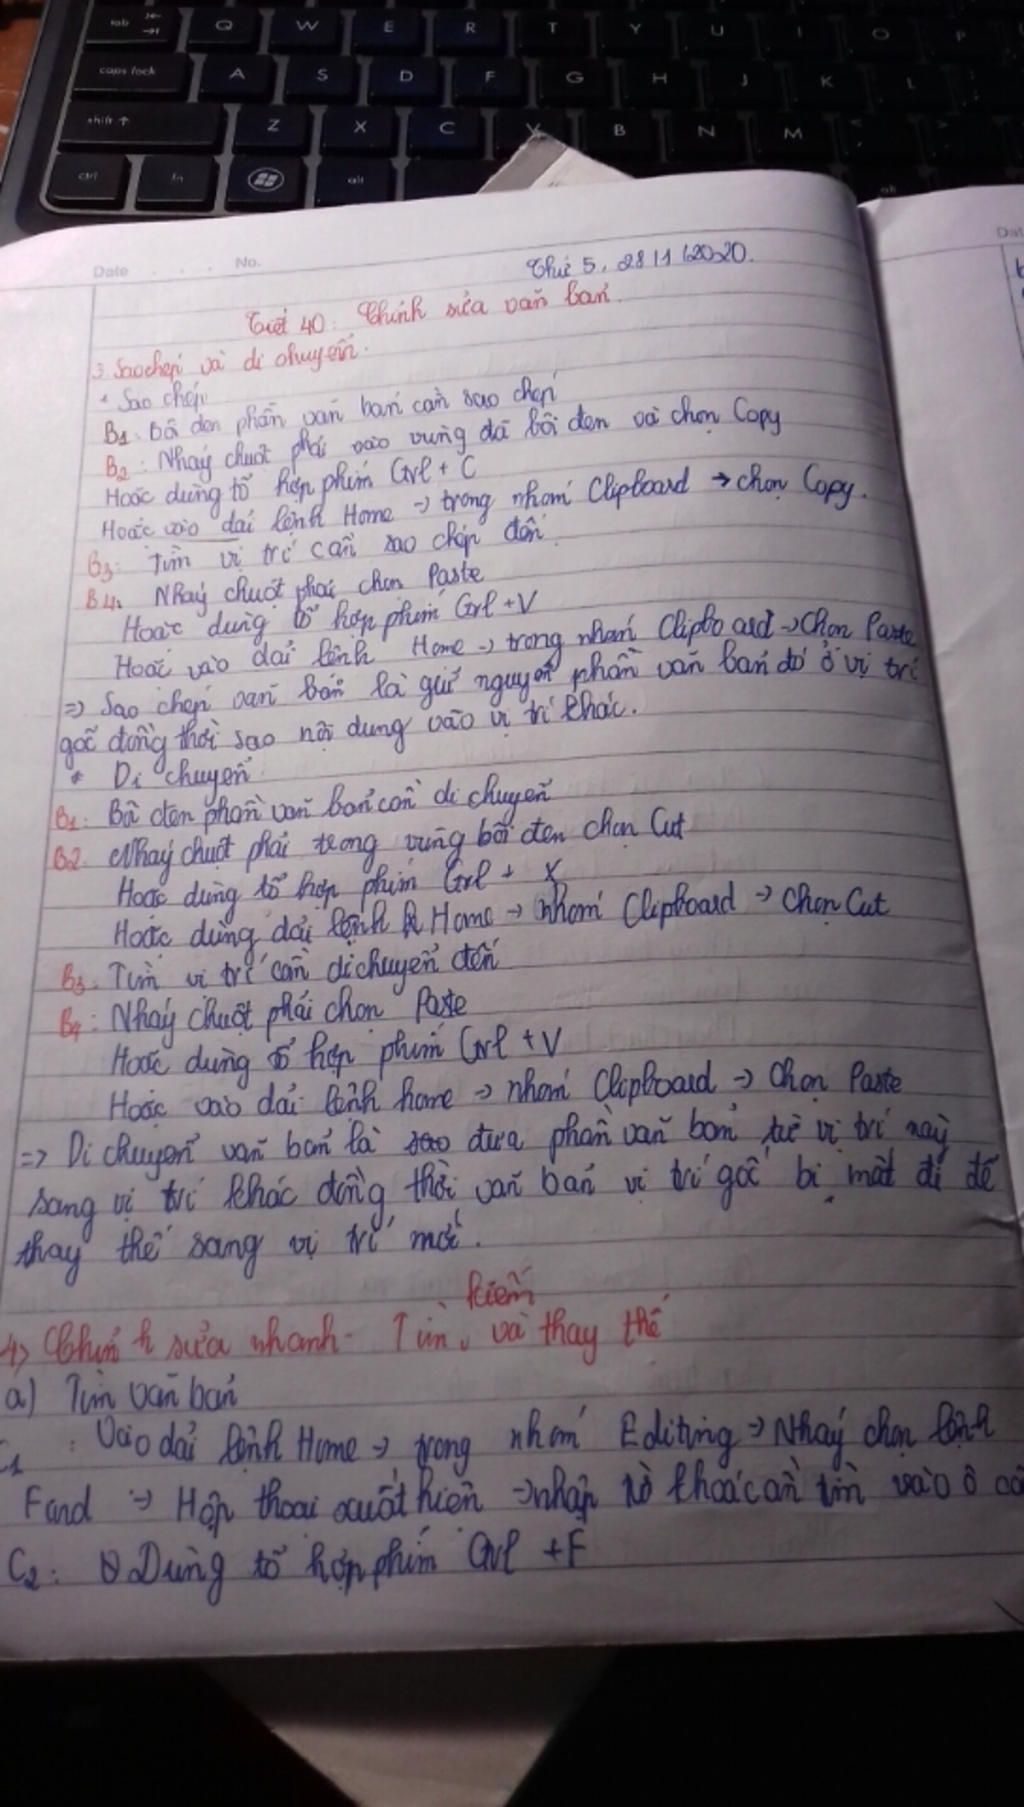 tab Q W E R T Y U I O P
caps lock A S D F G H J K L
shift Z X C V B N M
ctrl fn alt alt
Date No.
Thứ 5, 28/1/2020.
Tiết 40: Chỉnh sửa văn bản.
3. Sao chép và di chuyển.
* Sao chép
B1: Bôi đen phần văn bản cần sao chép
B2: Nháy chuột phải vào vùng đã bôi đen và chọn Copy
Hoặc dùng tổ hợp phím Ctrl + C
Hoặc vào dải lệnh Home → trong nhóm Clipboard → chọn Copy.
B3: Tìm vị trí cần sao chép đến.
B4: Nháy chuột phải chọn Paste
Hoặc dùng tổ hợp phím Ctrl + V
Hoặc vào dải lệnh Home → trong nhóm Clipboard → Chọn Paste
=> Sao chép văn bản là giữ nguyên phần văn bản đó ở vị trí
gốc đồng thời sao nội dung vào vị trí khác.
* Di chuyển
B1: Bôi đen phần văn bản cần di chuyển
B2: Nháy chuột phải trong vùng bôi đen chọn Cut
Hoặc dùng tổ hợp phím Ctrl + X
Hoặc dùng dải lệnh Home → nhóm Clipboard → Chọn Cut
B3: Tìm vị trí cần di chuyển đến
B4: Nháy chuột phải chọn Paste
Hoặc dùng tổ hợp phím Ctrl + V
Hoặc vào dải lệnh home → nhóm Clipboard → Chọn Paste
=> Di chuyển văn bản là sao đưa phần văn bản từ vị trí này
sang vị trí khác đồng thời văn bản vị trí gốc bị mất đi để
thay thế sang vị trí mới.
4> Chỉnh sửa nhanh - Tìm kiếm và thay thế
a) Tìm văn bản
C1: Vào dải lệnh Home → trong nhóm Editing → Nháy chọn lệnh
Fand → Hộp thoại xuất hiện → nhập từ khoá cần tìm vào ô
C2: Dùng tổ hợp phím Ctrl + F